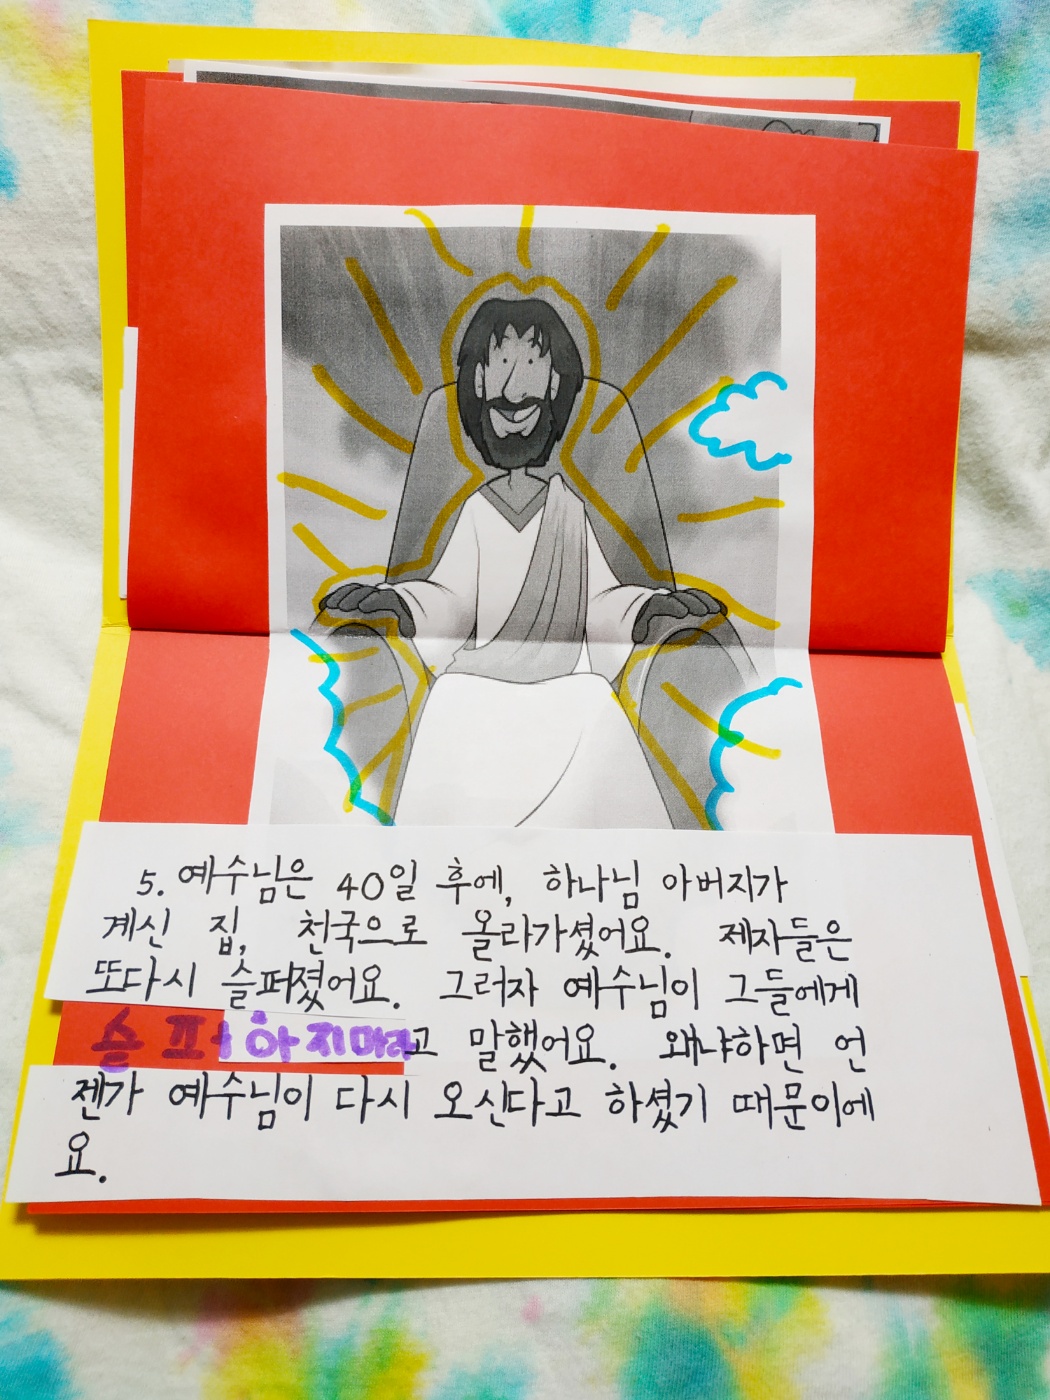 5. 예수님은 40일 후에, 하나님 아버지가
계신 집, 천국으로 올라가셨어요. 제자들은
또다시 슬퍼졌어요. 그러자 예수님이 그들에게
슬퍼하지마라고 말했어요. 왜냐하면 언
젠가 예수님이 다시 오신다고 하셨기 때문이에
요.